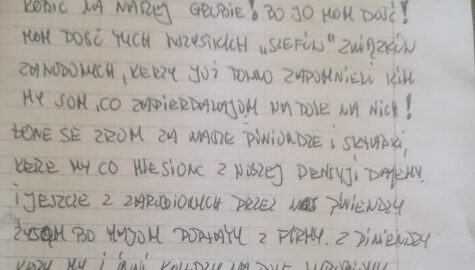 ROBIĆ NA NASZEJ GRUBIE! BO JO MOM DOŚĆ!
MOM DOŚĆ TYCH WSZYSTKICH „SZEFÓW" ZWIĄZKÓW
ZAWODOWYCH, KERZY JUŻ DOWNO ZAPOMNIELI KIM
MY SOM, CO ZAPIERDALAJOM NA DOLE NA NICH!
ŁONE SE ŻROM ZA NASZE PINIONDZE I SKŁADKI,
KERE MY CO MIESIONC Z NOSZEJ PENSYJI DAJEMY.
I JESZCZE Z ZAROBIONYCH PRZEZ NOS PINIENDZY
ŻYJOM BO MAJOM POPŁATY Z FIRMY. Z PINIENDZY
KERE MY I INNI KOLEDZY NA DOLE